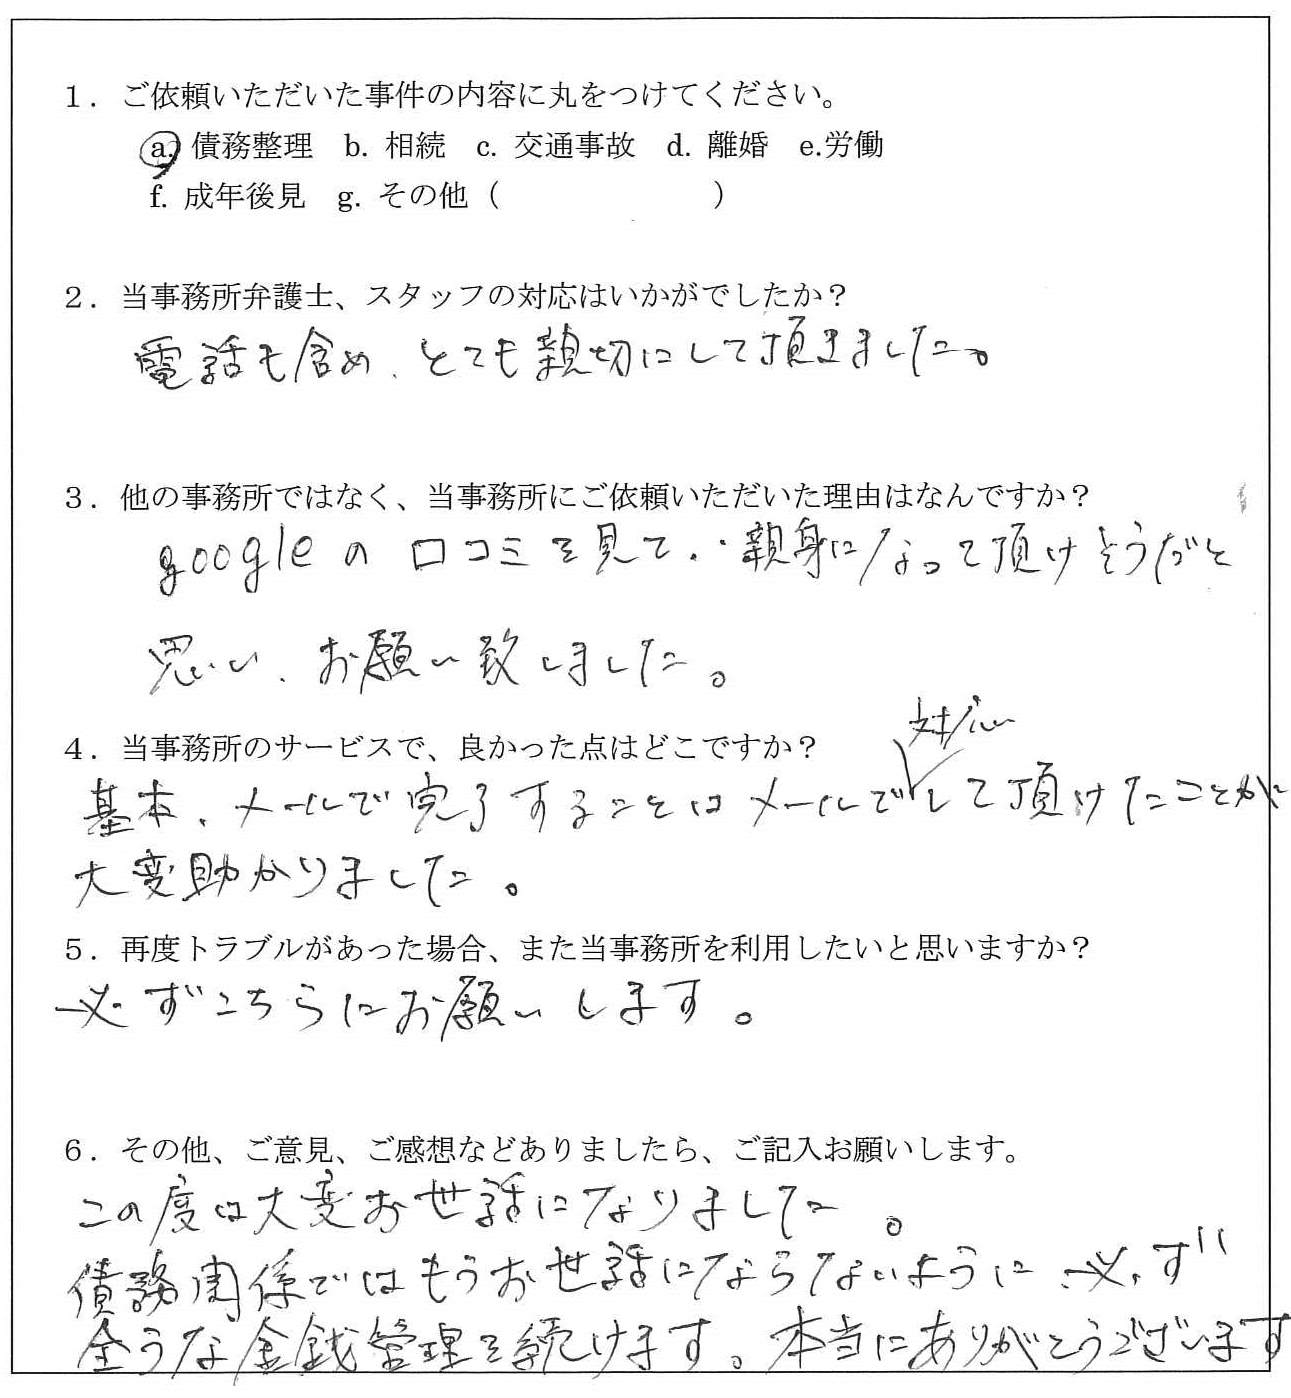 1．ご依頼いただいた事件の内容に丸をつけてください。
a. 債務整理　b. 相続　c. 交通事故　d. 離婚　e.労働
f. 成年後見　g. その他（　　　　　　　）
2．当事務所弁護士、スタッフの対応はいかがでしたか？
電話も含め、とても親切にして頂きました。
3．他の事務所ではなく、当事務所にご依頼いただいた理由はなんですか？
googleの口コミを見て、親身になって頂けそうだと
思い、お願い致しました。
4．当事務所のサービスで、良かった点はどこですか？
対応
基本、メールで完了することはメールでして頂けたことが
大変助かりました。
5．再度トラブルがあった場合、また当事務所を利用したいと思いますか？
必ずこちらにお願いします。
6．その他、ご意見、ご感想などありましたら、ご記入お願いします。
この度は大変お世話になりました。
債務関係ではもうお世話にならないように、必ず
全うな金銭管理を続けます。本当にありがとうございます